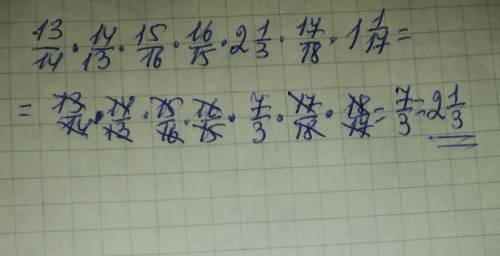 13/14 · 14/13 · 15/16 · 16/15 · 2 1/3 · 17/18 · 1 1/17 =
= 13/14 · 14/13 · 15/16 · 16/15 · 7/3 · 17/18 · 18/17 = 7/3 = 2 1/3